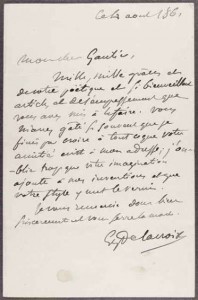 Ce 4 août 186.
Mon cher Gautier,
Mille, mille grâces et
de votre poétique et si bienveillant
article et de l'empressement que
vous avez mis à le faire. Vous
m'avez gâté si souvent que je
finis par croire à tout ce que votre
amitié
oublie trop que votre imagination
ajoute à mes inventions et que
votre style y met le vernis.
Je vous remercie donc bien
sincèrement et vous serre la main.
EugDelacroix